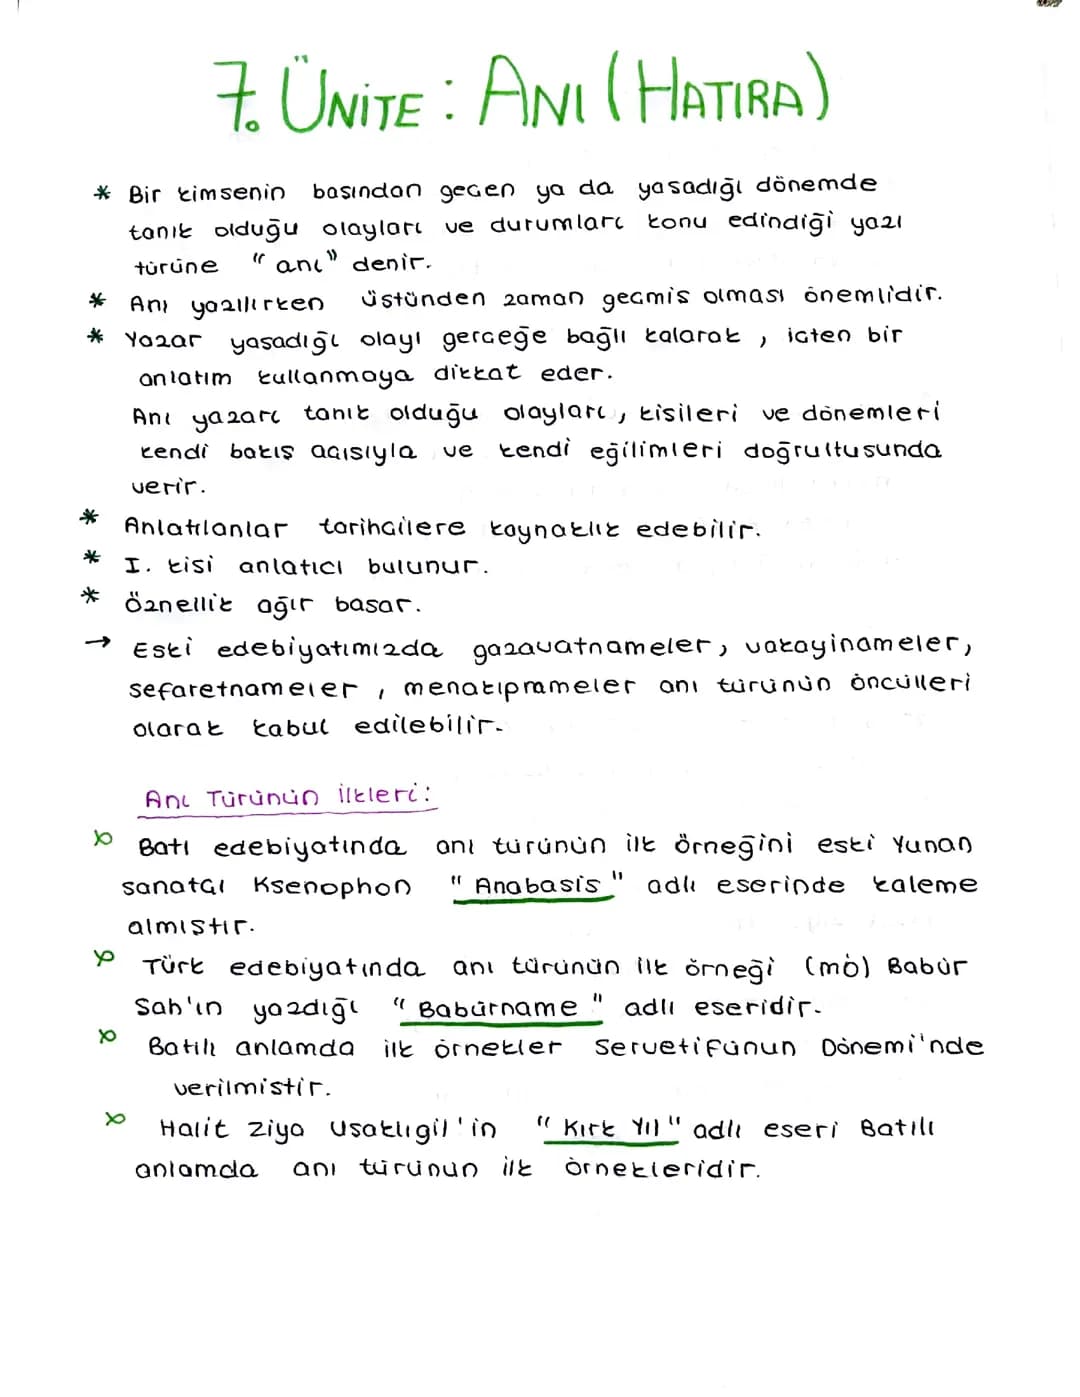 7. ÜNİTE : ANI (HATIRA)
* Bir kimsenin basından gecen ya da yasadığı dönemde
tanık olduğu olayları ve durumları konu edindiği yazı
türüne "anı" denir.
* Anı yazılırken üstünden zaman gecmis olması önemlidir.
* Yazar yasadığı olayı gerceğe bağlı kalarak , icten bir
anlatım kullanmaya dikkat eder.
Anı yazarı tanık olduğu olayları, kisileri ve dönemleri
kendi bakış acısıyla ve kendi eğilimleri doğrultusunda
verir.
* Anlatılanlar tarihcilere kaynaklık edebilir.
* I. kisi anlatıcı bulunur.
* Öznellik ağır basar.
→ Eski edebiyatımızda gazavatnameler, vakayinameler,
sefaretnameler , menakıpnameler anı türünün öncülleri
olarak kabul edilebilir.
Anı Türünün İlkleri:
Batı edebiyatında anı türünün ilk örneğini eski Yunan
sanatcı Ksenophon "Anabasis" adlı eserinde kaleme
almıstır.
Türk edebiyatında anı türünün ilk örneği (mö) Babür
Sah'ın yazdığı "Babürname" adlı eseridir.
Batılı anlamda ilk örnekler Servetifünun Dönemi'nde
verilmistir.
Halit Ziya Usaklıgil'in "Kırk Yıl" adlı eseri Batılı
anlamda anı türünün ilk örnekleridir.